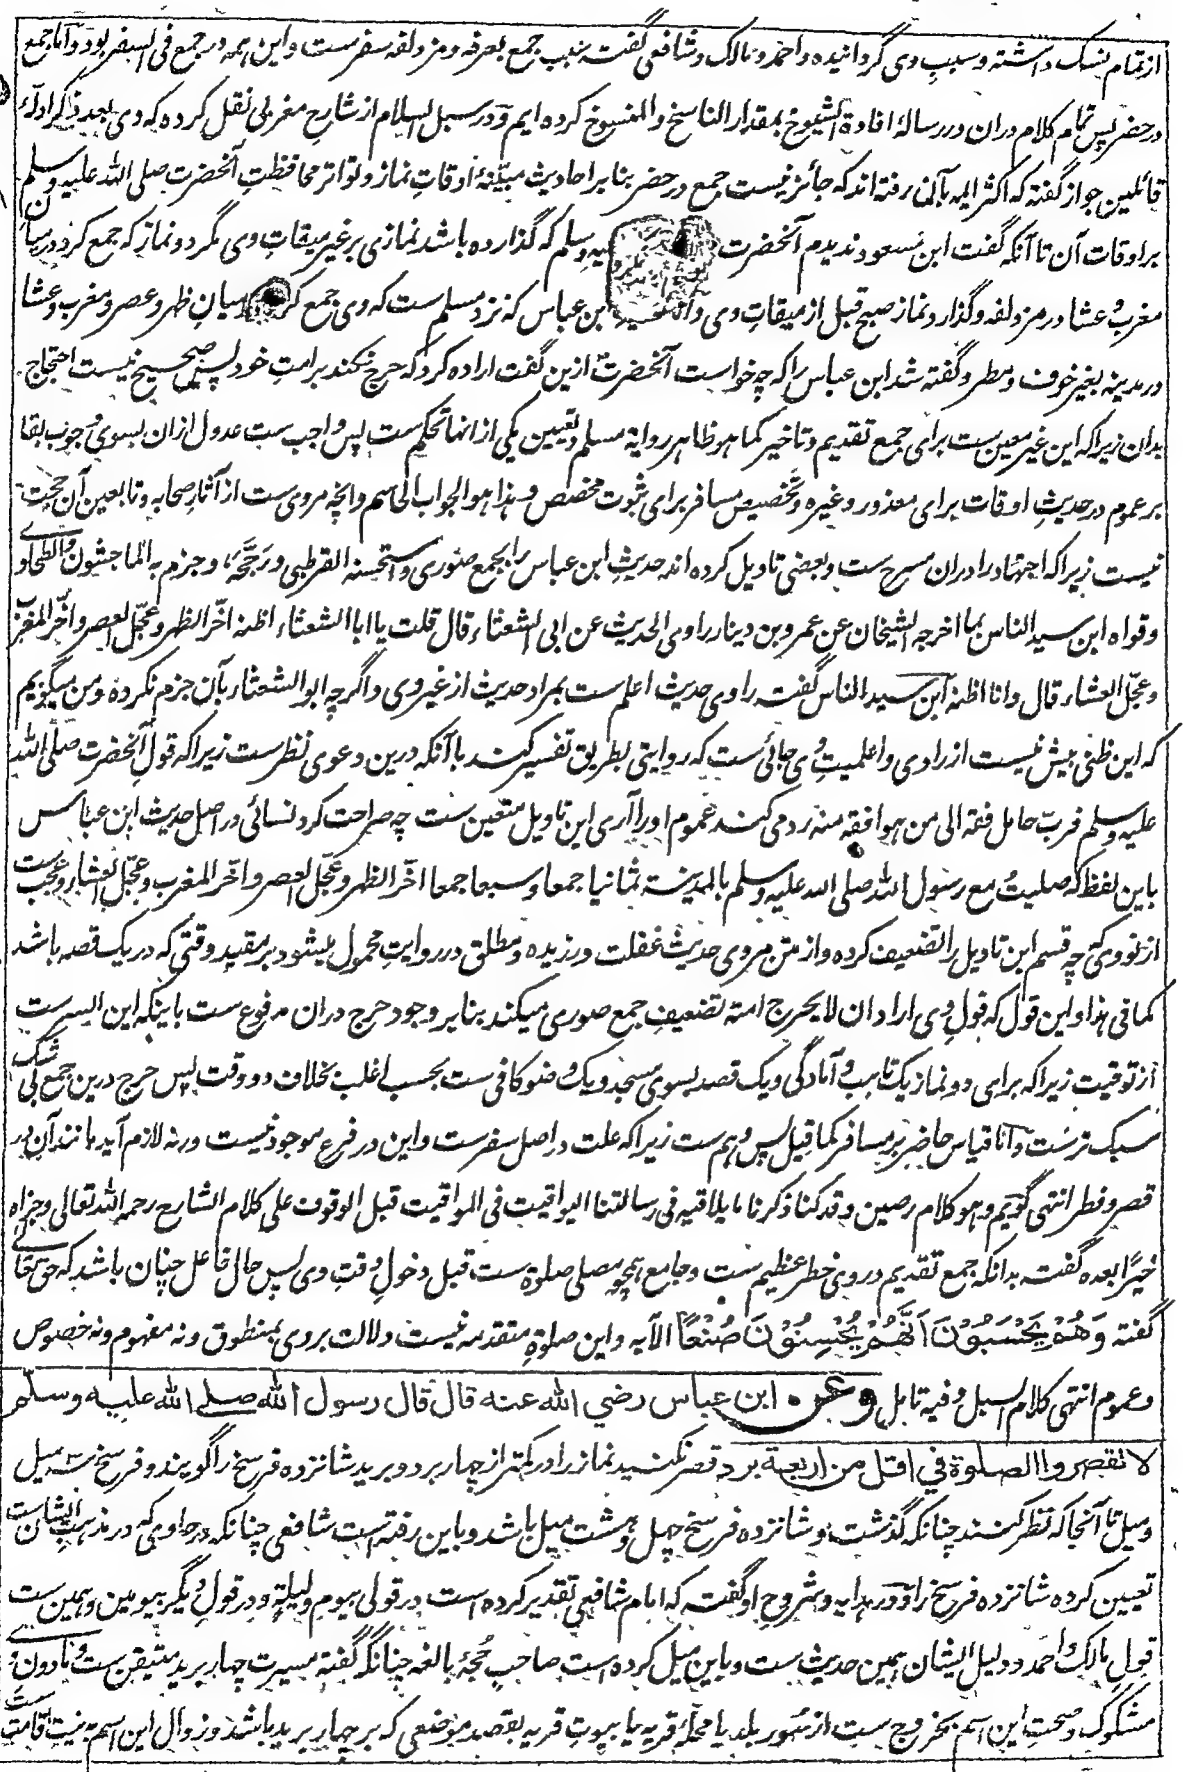 از تمام نسک داشته و سبب وی گردانیده و احمد و مالک و شافعی گفته سبب جمع بعرفه و مزدلفه سفرست و این همه در جمع فی السفر بود و اما جمع
در حضر پس تمام کلام در ان در رسالهٔ افادة الشیوخ بمقدار الناسخ و المنسوخ کرده ایم و در سبل السلام از شارح مغربی نقل کرده که وی بعد ذکر ادلهٔ
قائلین جواز گفته که اکثر ائمه بآن رفته اند که جائز نیست جمع در حضر بنا بر احادیث مبیّنهٔ اوقات نماز و تواتر محافظت آنحضرت صلی الله علیه وسلم
بر اوقات آن تا آنکه گفت ابن مسعود ندیدم آنحضرت یه وسلم که گذارده باشد نمازی بر غیر میقات وی مگر دو نماز که جمع کرد در میان
مغرب و عشا در مزدلفه و گذارد نماز صبح قبل از میقات وی و اما ابن عباس که نزد مسلم ست که وی جمع کرد میان ظهر و عصر و مغرب و عشا
در مدینه بغیر خوف و مطر و گفته شد ابن عباس را که چه خواست آنحضرت ازین گفت اراده کرد که حرج نکند بر امت خود پس صحیح نیست احتجاج
بدان زیرا که این غیر معین ست برای جمع تقدیم و تاخیر کما هو ظاهر روایة مسلم و تعیین یکی از انها تحکم ست پس واجب ست عدول از ان بسوی وجوب بقا
بر عموم در حدیث اوقات برای معذور و غیره و تخصیص مسافر برای ثبوت مخصص و هذا هو الجواب الحاسم و انچه مروی ست از آثار صحابه و تابعین آن حجت
نیست زیرا که اجتهاد را در ان مسرح ست و بعضی تاویل کرده اند حدیث ابن عباس را بجمع صوری و استحسنه القرطبی و رَجَّحَهُ و جزم به الماجشون والطحاوی
و قواه ابن سید الناس بما اخرجه الشیخان عن عمرو بن دینار راوی الحدیث عن ابی الشعثاء قال قلت یا ابا الشعثاء اظنه اخّر الظهر و عجّل العصر و اخّر المغرب
و عجّل العشاء قال و انا اظنه ابن سید الناس گفته راوی حدیث اعلم ست بمراد حدیث از غیر وی و اگرچه ابو الشعثاء بآن جزم نکرده و من میگویم
که این ظنی بیش نیست از راوی و اعلمیت وی جائی ست که روایتی بطریق تفسیر کند با آنکه درین دعوی نظرست زیرا که قول آنحضرت صلی الله
علیه وسلم فربّ حامل فقه الی من هو افقه منه رد می کند عموم او را آری این تاویل متعین ست چه صراحت کرد نسائی در اصل حدیث ابن عباس
باین لفظ که صلیتُ مع رسول الله صلی الله علیه وسلم بالمدینة ثمانیا جمعا و سبعا جمعا اخّر الظهر و عجّل العصر و اخّر المغرب و عجّل العشاء و عجب ست
از نووی که چه قسم این تاویل را تضعیف کرده و از متن مروی حدیث غفلت ورزیده و مطلق در روایت محمول میشود بر مقید وقتی که در یک قصه باشد
کما فی هذا و این قول که قول وی اراد ان لا یحرج امته تضعیف جمع صوری میکند بنا بر وجود حرج در ان مدفوع ست باینکه این ایسرست
از توقیت زیرا که برای دو نماز یک تاهب و آمادگی و یک قصد بسوی مسجد و یک وضو کافی ست بحسب اغلب بخلاف دو وقت پس حرج درین جمع بی شک
سبک ترست و اما قیاس حاضر بر مسافر کما قیل پس وهم ست زیرا که علت در اصل سفرست و این در فرع موجود نیست ورنه لازم آید مانند آن در
قصر و فطر انتهی گویم و هو کلام رصین و قد کنا ذکرنا ما یلاقیه فی رسالتنا الیواقیت فی المواقیت قبل الوقوف علی کلام الشارح رحمه الله تعالی و جزاه
خیرًا بعده گفته بدانکه جمع تقدیم در وی خطر عظیم ست و جامع همچو مصلی صلوة ست قبل دخول وقت وی پس حال فاعل چنان باشد که حق تعالی
گفته وَهُمْ يَحْسَبُوْنَ اَنَّهُمْ يُحْسِنُوْنَ صُنْعًا الآیه و این صلوة متقدمه نیست دلالت بر وی بمنطوق و نه مفهوم و نه خصوص
و عموم انتهی کلام السبل و فیه تامل وعن ابن عباس رضي الله عنه قال قال رسول الله صلى الله عليه وسلم
لا تقصروا الصلوة في اقل من اربعة برد قصر نکنید نماز را در کمتر از چهار برد و برید شانزده فرسخ را گویند و فرسخ سه میل
و میل تا آنجا که نظر کنند چنانکه گذشت و شانزده فرسخ چهل و هشت میل باشد و باین رفته است شافعی چنانکه در حاوی که در مذهب ایشان ست
تعیین کرده شانزده فرسخ را و در هدایه و شروح او گفته که امام شافعی تقدیر کرده است در قولی بیوم و لیلة و در قول دیگر بیومین و همین ست
قول مالک و احمد و دلیل ایشان همین حدیث ست و باین میل کرده است صاحب حجهٔ بالغه چنانکه گفته مسیرت چهار برید متیقن ست و مادون وی
مشکوک و صحت این اسم بخروج ست از سور بلد یا محلهٔ قریه یا بیوت قریه بقصد موضعی که بر چهار برید باشد و زوال این اسم به نیت اقامت ست